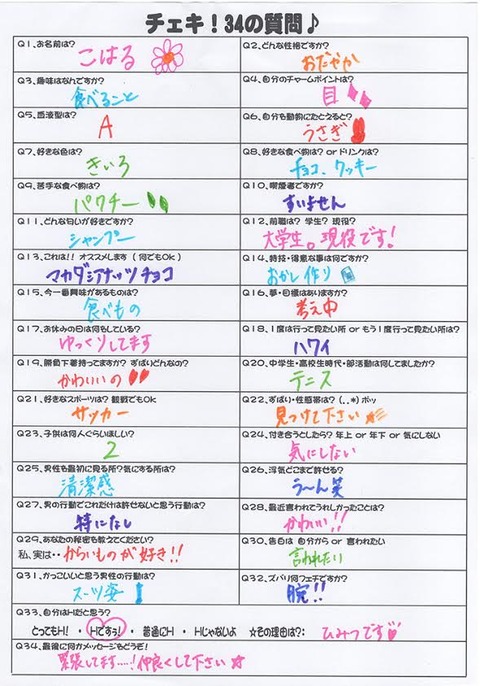 チェキ！34の質問♪
Q1、お名前は？
こはる
Q2、どんな性格ですか？
おだやか
Q3、趣味はなんですか？
食べること
Q4、自分のチャームポイントは？
目
Q5、血液型は？
A
Q6、自分を動物にたとえると？
うさぎ
Q7、好きな色は？
きいろ
Q8、好きな食べ物は？ or ドリンクは？
チョコ、クッキー
Q9、苦手な食べ物は？
パクチー
Q10、喫煙者ですか？
すいません
Q11、どんな匂いが好きですか？
シャンプー
Q12、前職は？ 学生？ 現役？
大学生。現役です！
Q13、これは！！ オススメします（ 何でもOk）
マカダシアナッツチョコ
Q14、特技・得意な事は何ですか？
おかし作り
Q15、今一番興味があるものは？
食べもの
Q16、夢・目標はありますか？
考え中
Q17、お休みの日は何をしている？
ゆっくりしてます
Q18、1度は行って見たい所 or もう1度行って見たい所は？
ハワイ
Q19、勝負下着持ってますか？ ずばりどんなの？
かわいいの
Q20、中学生・高校生時代・部活動は何してましたか？
テニス
Q21、好きなスポーツは？ 観戦でもOK
サッカー
Q22、ずばり・性感帯は？（．．*）ポッ
見つけて下さい
Q23、子供は何人ぐらいほしい？
2
Q24、付き合うとしたら？ 年上 or 年下 or 気にしない
気にしない
Q25、男性を最初に見る所？気にする所は？
清潔感
Q26、浮気どこまで許せる？
う～ん笑
Q27、男の行動でこれだけは許せないと思う行動は？
特になし
Q28、最近言われてうれしかったことは？
かわいい!!
Q29、あなたの秘密を教えてください？
私、実は・・からいものが好き!!
Q30、告白は 自分から or 言われたい
言われたい
Q31、かっこいいと思う男性の行動は？
スーツ姿
Q32、ズバリ何フェチですか？
腕!!
Q33、自分はHだと思う？
とってもH！ ・ Hですぅ！ ・ 普通にH ・ Hじゃないよ ☆その理由は？： ひみつです
Q34、最後に何かメッセージをどうぞ！
緊張してます…！仲良くして下さい☆